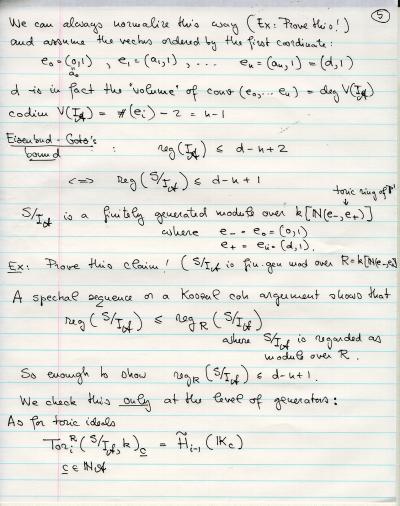 5
We can always normalize this way (Ex: Prove this!)
and assume the vectors ordered by the first coordinate:
e₀=(0,1), e₁=(a₁,1), ... eₙ=(aₙ,1)=(d,1)
a₀
d is in fact the "volume" of conv(e₀,...eₙ) = deg V(I_A)
codim V(I_A) = #(eᵢ) - 2 = n-1
Eisenbud-Goto's : reg(I_A) ≤ d-n+2
bound
<=> reg(S/I_A) ≤ d-n+1
toric ring of P¹
S/I_A is a finitely generated module over k[N(e₋,e₊)]
where e₋ = e₀ = (0,1)
e₊ = eₙ = (d,1).
Ex: Prove this claim! (S/I_A is fin.gen mod over R=k[N(e₋,e₊)]
A spectral sequence or a Koszul coh argument shows that
reg(S/I_A) ≤ reg_R(S/I_A)
where S/I_A is regarded as
module over R.
So enough to show reg_R(S/I_A) ≤ d-n+1.
We check this only at the level of generators:
As for toric ideals
Torᵢᴿ(S/I_A, k)_c = H̃ᵢ₋₁(K_c)
c ∈ NA